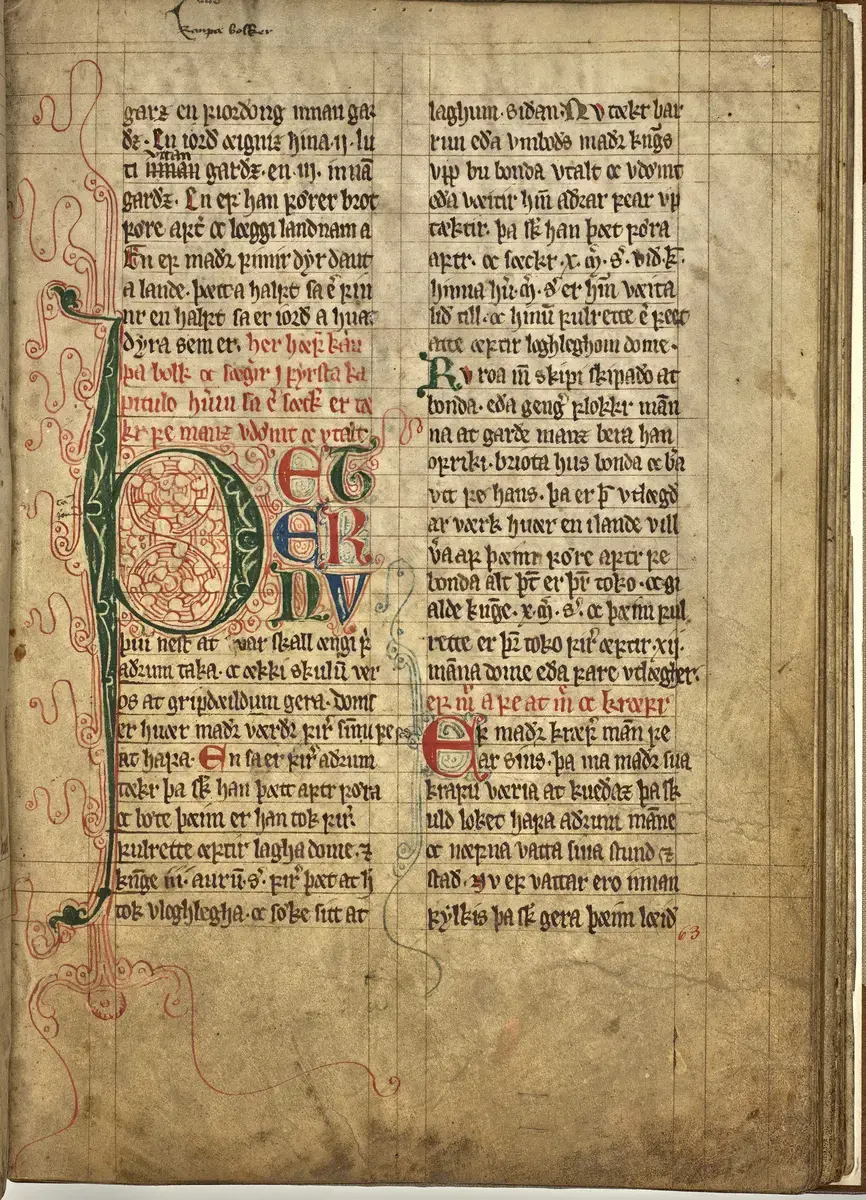 kaupa bolker
garz en fiordong innan gar
dz. En iord æignir hina .ij. lu
ti vttan innan gardz. en .iij. innā
gardz. En ef han förer brot
före aft̄ oc læggi landnam a
En ef madz finnir dyr daut
a lande. þætta halft sa ē fin
nr en halft sa er iord a huar
dyra sem er. her hæfr kau
pa bolk oc sægir j fyrsta ka
pitulo hūru sa ē sæck er tæ
kr fe manz vdomt oc vtalt
ÞET
ER
NV
þui nest at var skall æingi f̄
adrum taka. oc ækki skulū ver
os at gripdæildum gera. doms
er huær madz værdz firͥ sīnu fe
at hafa. En sa er firͥ adrum
tækr þa sk̄ han þæt aftr föra
oc böte þæim er han tok firͥ.
fulrette æftir lagha dome. ⁊
kn̄ge iij. aurū .s. firͥ þæt at h̄
tok vloghlegha. oc söke sitt at
laghum. sidan. Nv tækr bar
run eda vmbods madz kngͥs
vpp bu bonda vtalt oc vdomt
eda væitir hm̄ adrar fear vp
tæktir. þa sk̄ han þæt föra
aftr. oc sæckr .x. m̄. s̄. vid k̄.
hinna hū m̄. s̄ er hm̄ væita
lid till. oc hinū fulrette ē feet
atte æftir loghleghom dome.
Ry roa m̄ skipi skipado at
bonda. eda gengͬ flokkr mān
na at garde manz bera han
ofriki. briota hus bonda oc b̄a
vtt fe hans. þa er þ̄ vtlægd
ar værk huær en ilande vill
v̄a af þæim före aftr fe
bonda alt þt̄ er þr̄ toko. oc gi
alde kun̄ge .x. m̄. s̄. oc þæim ful
rette er þr̄ toko firͥ æftir .xij.
māna dome eda fare vtlægher.
ef m̄ a fe at m̄ oc kræfr
Ef madz kræfr mān fe
ar sins. þa ma madz sua
krafu væria at kuedaz þa sk
uld loket hafa adrum māne
oc næfna vatta sina stund ⁊
stad. Nv ef vattar ero innan
fylkis þa sk̄ gera þæim læid
63